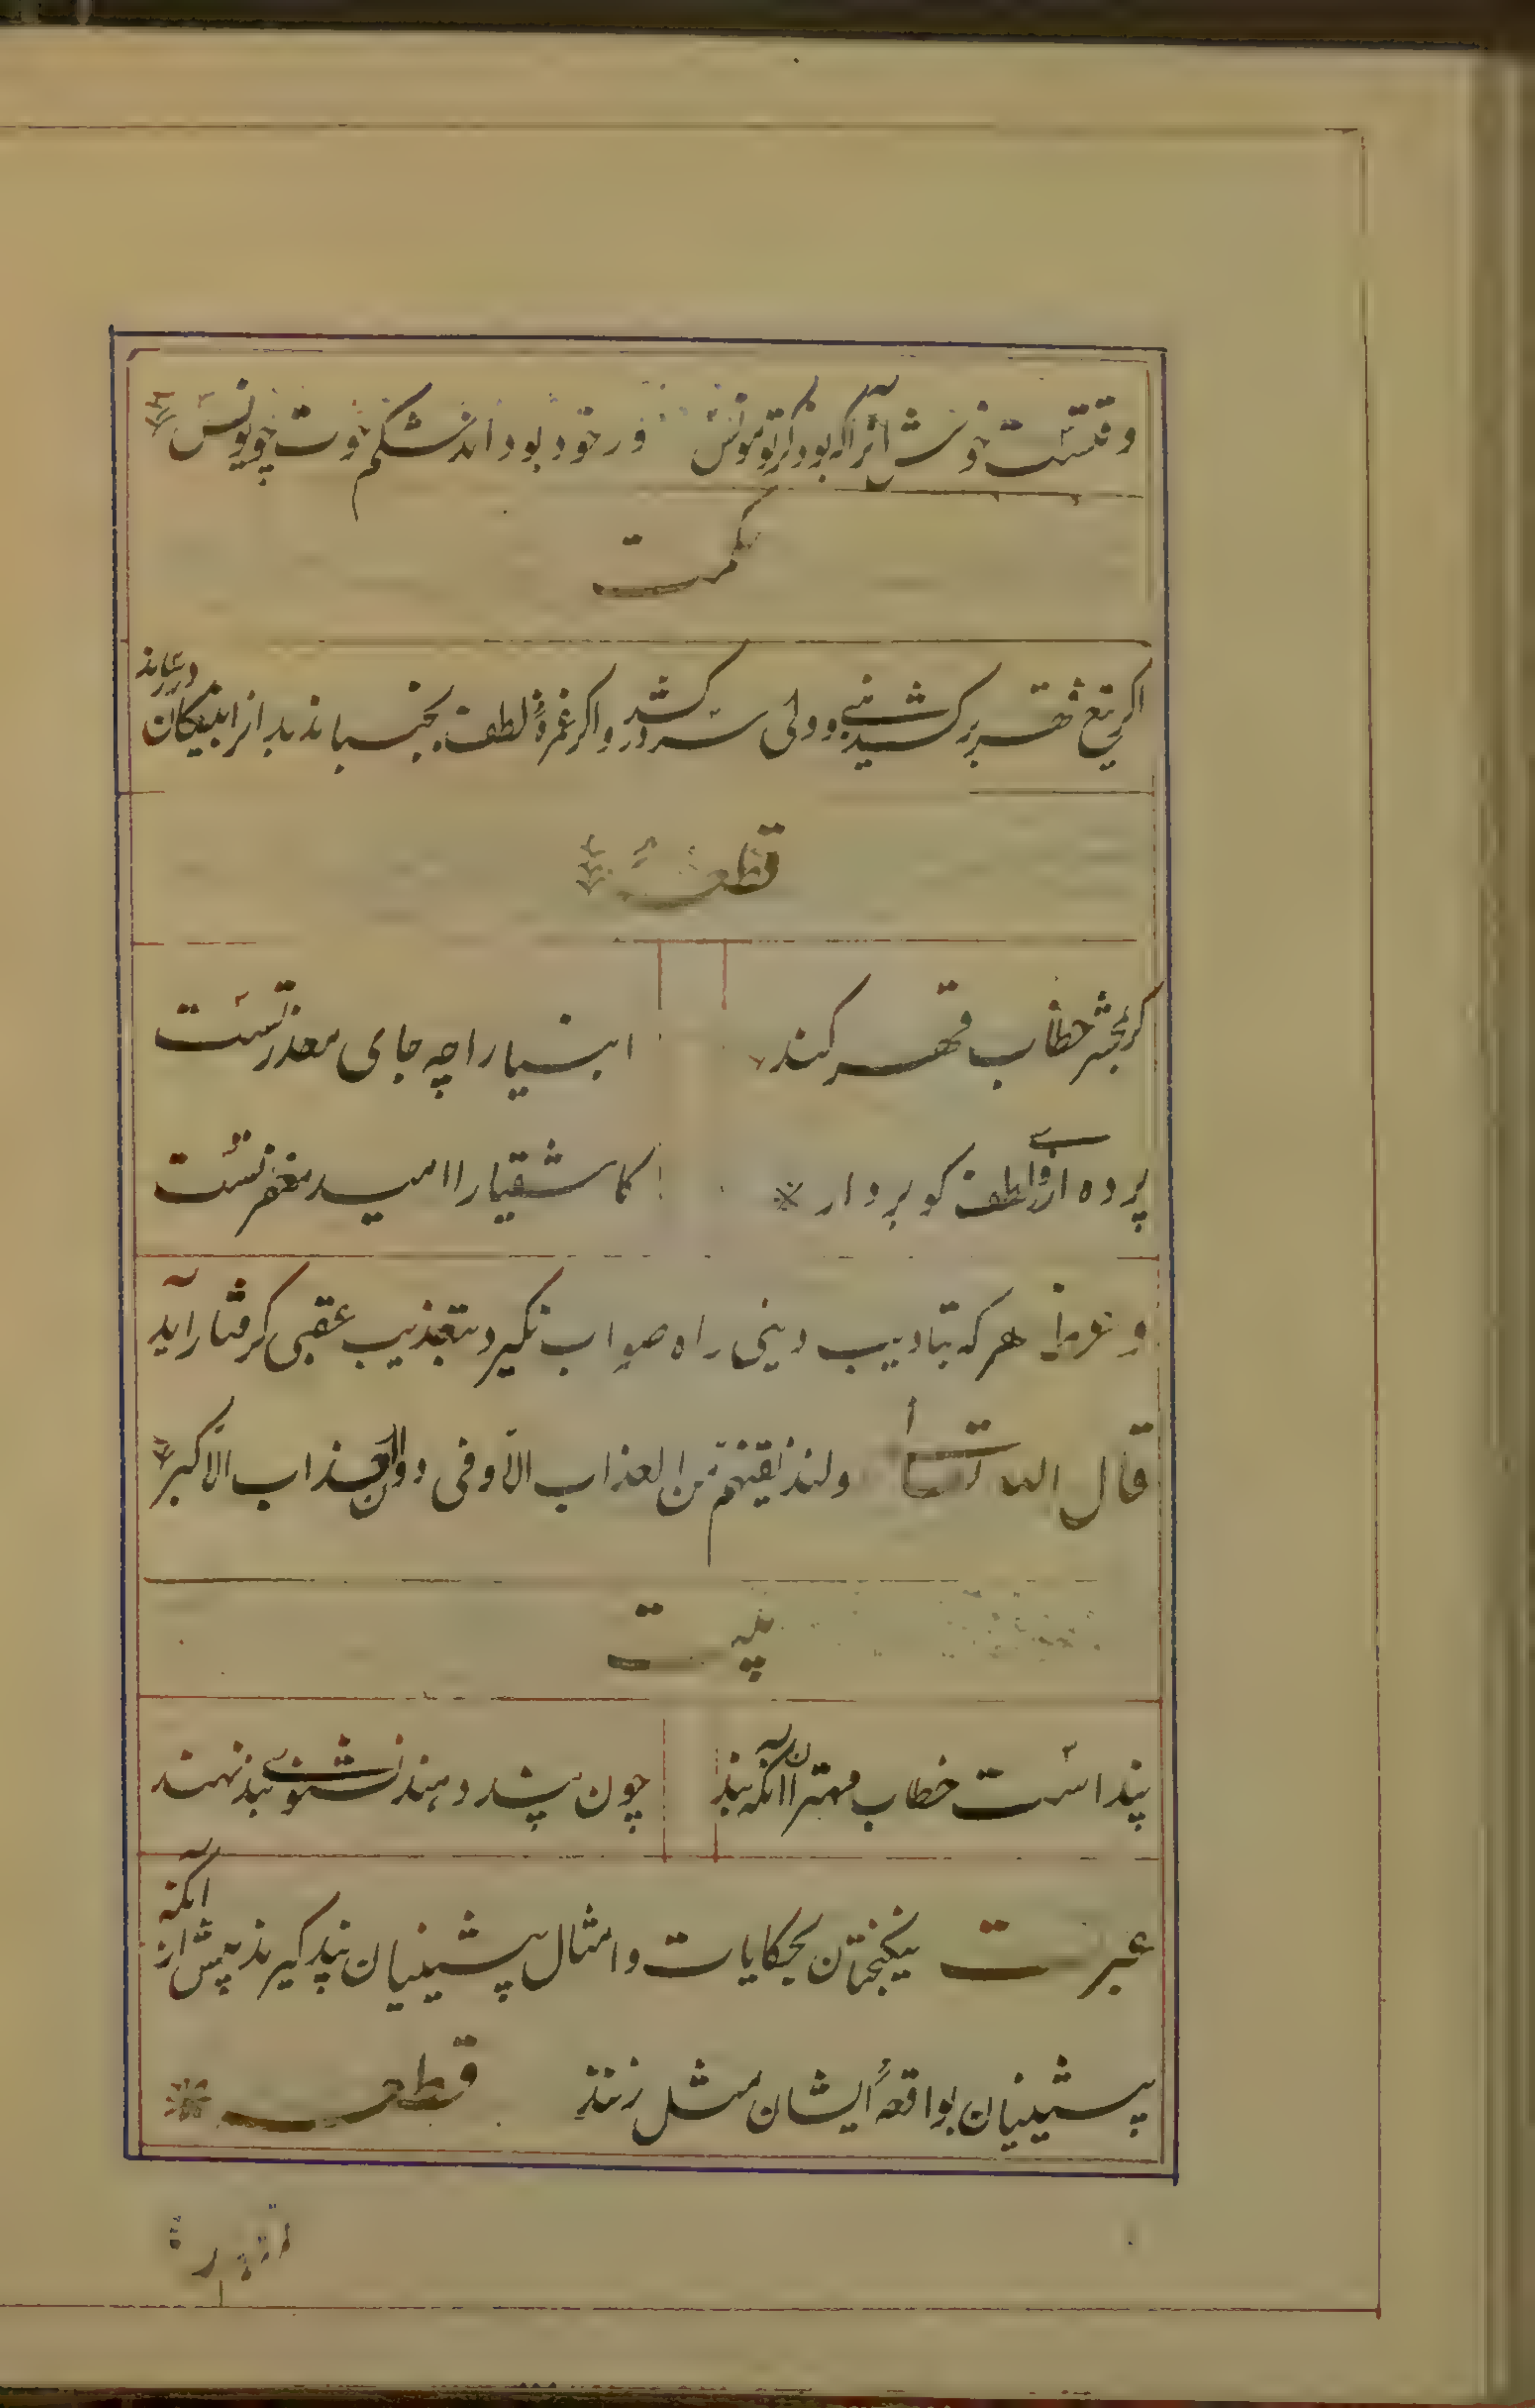 وقتست خوش آنرا که بود ذکر تو مونس ور خود بود اندر شکم حوت چو یونس
حکمت
اکر تیغ قهر برکشد نبی و ولی سر درکشد و اکر غمزهٔ لطف بجنباند بدانرا بنیکان دررساند
قطعه
کر بمحشر خطاب قهر کند انبیا را چه جای معذرتست
پرده از روی لطف کو بردار کاشقیا را امید مغفرتست
هر که بتادیب دینی راه صواب نکیرد بتعذیب عقبی کرفتار آید
قال الله تعالی ولنذیقنهم من العذاب الادنی دون العذاب الاکبر
بیت
پنداست خطاب مهتران آنکه بند چون پند دهند نشنوی بند نهند
عبرت نیکبختان بحکایات و امثال پیشینیان پند کیرند پیش از آنکه
پسینیان بواقعهٔ ایشان مثل زنند قطعه